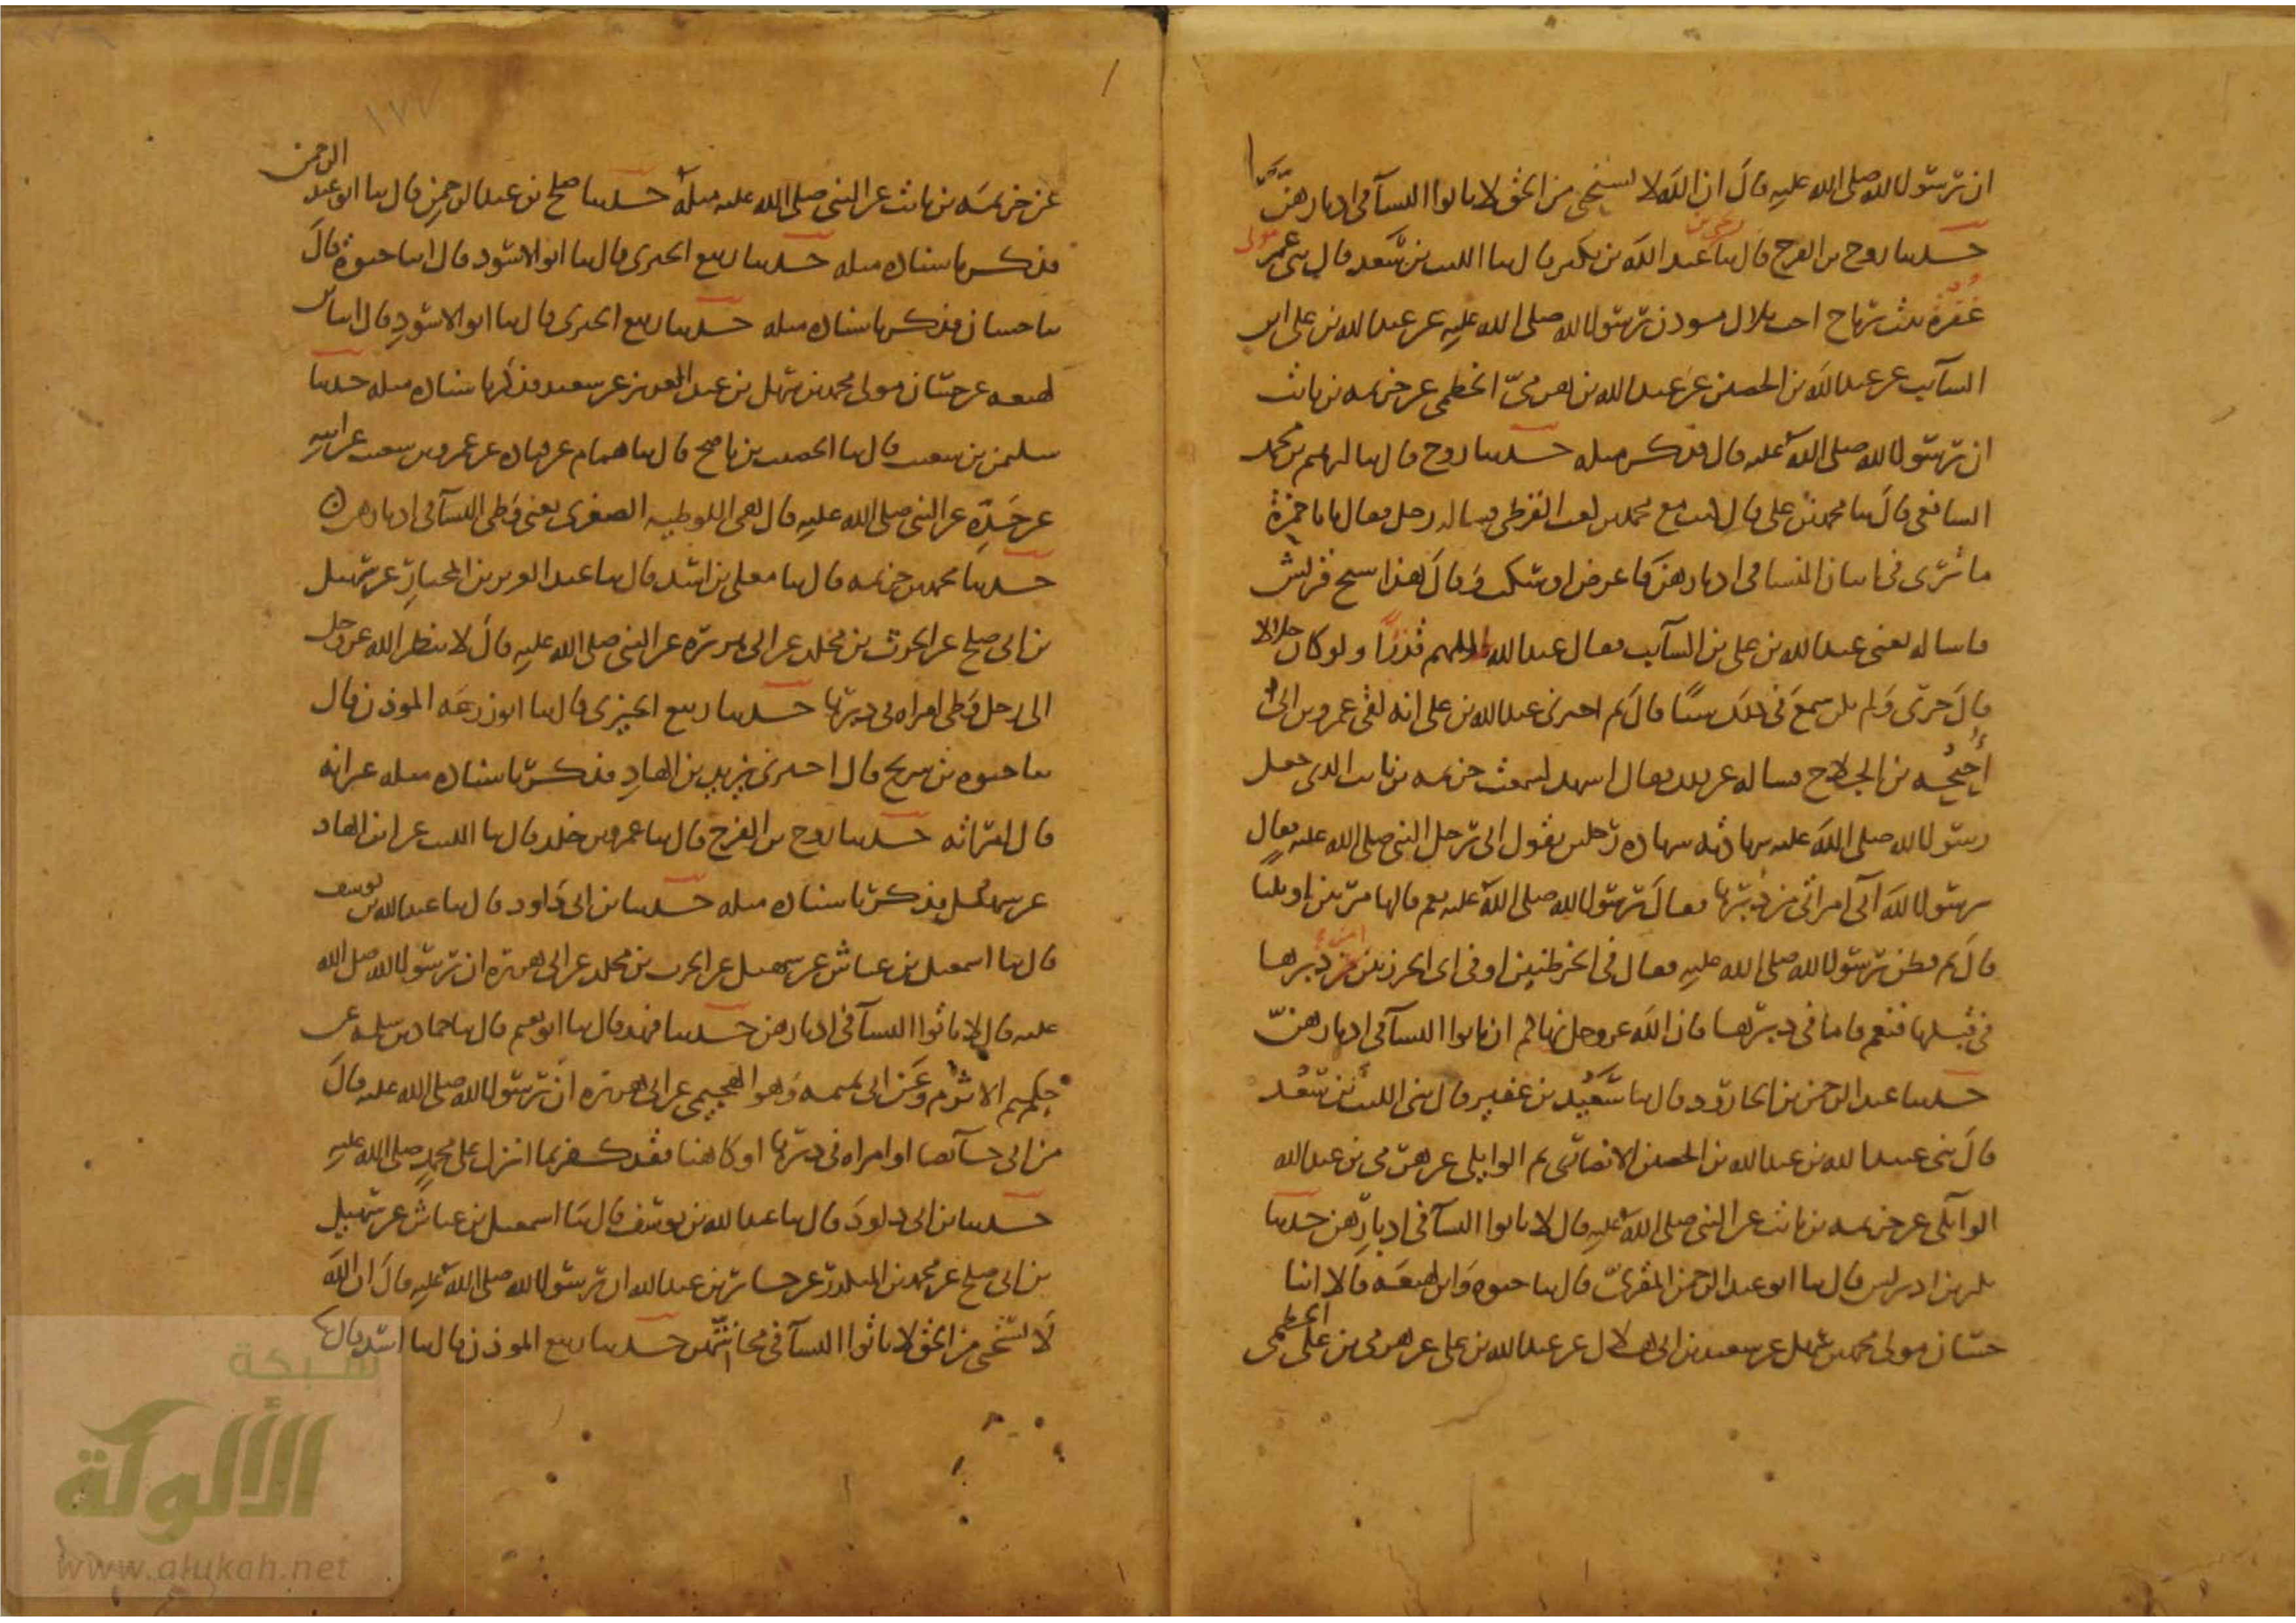 ان رسول الله صلى الله عليه قال ان الله لا يستحيي من الحق لا تاتوا النسآ في ادبارهنّ
حدثنا روح بن الفرج قال ثنا يحيى بن عبد الله بن بكير قال ثنا الليث بن سعد قال ثني عمر مولى
غفرة بنت رباح اخت بلال موذن رسول الله صلى الله عليه عن عبد الله بن علي ابن
السآيب عن عبد الله بن الحصين عن عبد الله بن هرمي الخطمي عن خزيمه بن ثابت
ان رسول الله صلى الله عليه قال فذكر مثله حدثنا روح قال ثنا ابرهيم بن محمد
الشافعي قال ثنا محمد بن علي قال كنت مع محمد بن كعب القرظي فساله رجل فقال يابا حمزة
ما ترى في اتيان النسا في ادبارهن فاعرض او سكت وقال هذا شيخ قريش
فاساله يعني عبد الله بن علي بن السآيب فقال عبد الله اللهم قذرًا ولو كان حلالا
قال حرى ولم يكن سمع في ذلك شيئًا قال ثم اخبرني عبد الله بن علي انه لقي عمرو بن ابي
أُحيحُه بن الجلاح فساله عن ذلك فقال اشهد لسمعت خزيمه بن ثابت الذي جعل
رسول الله صلى الله عليه شهادته شهاده رجلين يقول اتى رجل النبي صلى الله عليه فقال
يرسول الله آتي امراتي من دبرها فقال رسول الله صلى الله عليه نعم قالها مرتين او ثلثا
قال ثم فطن رسول الله صلى الله عليه فقال في الخرطتين او في اي الخرزتين امن دبرها
في قبلها فنعم فاما في دبرها فان الله عز وجل نهاكم ان تاتوا النسآ في ادبارهنّ
حدثنا عبد الرحمن بن الجارود قال ثنا سعيد بن عفير قال ثني الليث بن سعد
قال ثني عبيد الله بن عبد الله بن الحصين الانصاري ثم الوايلي عن هرمي بن عبد الله
الوآيلي عن خزيمه بن ثابت عن النبي صلى الله عليه قال لا تاتوا النسآ في ادبارهن حدثنا
بكر بن ادريس قال ثنا ابو عبد الرحمن المقرئ قال ثنا حيوه وابن لهيعه قالا انا
حسان مولى محمد بن سهل عن سعيد بن ابي هلال عن عبد الله بن علي عن هرمي بن علي الخطمي
١٧٧
عن خزيمه بن ثابت عن النبي صلى الله عليه مثله حدثنا صلح بن عبد الرحمن قال ثنا ابو عبد الرحمن
فذكر باسناده مثله حدثنا ربيع الجيزي قال ثنا ابو الاسود قال انا حيوة قال
ثنا حسان فذكر باسناده مثله حدثنا ربيع الجيزي قال ثنا ابو الاسود قال انا ابن
لهيعه عن حسان مولى محمد بن سهل بن عبد العزيز عن سعيد فذكر باسناده مثله حدثنا
سليمن بن شعيب قال ثنا الخصيب بن ناصح قال ثنا همام عن قتاده عن عمرو بن شعيب عن ابيه
عن جده عن النبي صلى الله عليه قال هي اللوطيه الصغرى يعني وطي النسآ في ادبارهن
حدثنا محمد بن خزيمه قال ثنا معلى بن اسد قال ثنا عبد العزيز بن المختار عن سهيل
بن ابي صلح عن الحرث بن مخلد عن ابي هريرة عن النبي صلى الله عليه قال لا ينظر الله عز وجل
الى رجل وطي امراه في دبرها حدثنا ربيع الجيزي قال ثنا ابو زرعه الموذن قال
ثنا حيوه بن شريح قال اخبرني يزيد بن الهاد فذكر باسناده مثله غير انه
قال امراته حدثنا روح بن الفرج قال ثنا عمرو بن خلد قال ثنا الليث عن ابن الهاد
عن سهيل فذكر باسناده مثله حدثنا بن ابي داود قال ثنا عبد الله بن يوسف
قال ثنا اسمعيل بن عياش عن سهيل عن الحرث بن مخلد عن ابي هريرة ان رسول الله صلى الله
عليه قال لا تاتوا النسآ في ادبارهن حدثنا فهد قال ثنا ابو نعيم قال ثنا حماد بن سلمه عن
حكيم الاثرم وعن ابي تميمه وهو الهجيمي عن ابي هريرة ان رسول الله صلى الله عليه قال
من اتى حآئضا او امراه في دبرها او كاهنا فقد كفر بما انزل على محمد صلى الله عليه
حدثنا بن ابي داود قال ثنا عبد الله بن يوسف قال ثنا اسمعيل بن عياش عن سهيل
بن ابي صلح عن محمد بن المنكدر عن جابر بن عبد الله ان رسول الله صلى الله عليه قال ان الله
لا يستحيي من الحق لا تاتوا النسآ في محاشهن حدثنا ربيع الموذن قال ثنا اسد قال ثنا
شبكة
الألوكة
www.alukah.net